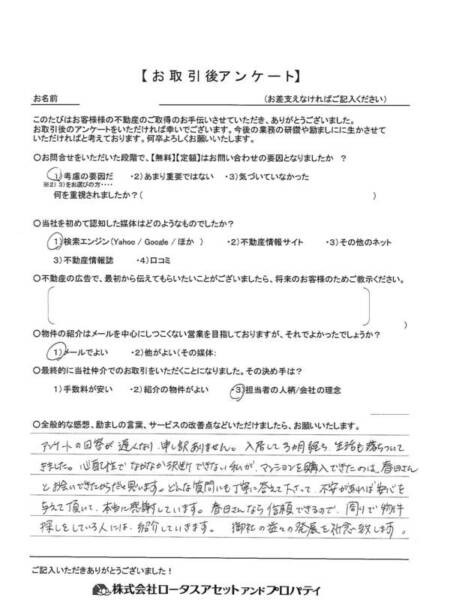 【お取引後アンケート】
お名前 (お差支えなければご記入ください)
このたびはお客様様の不動産のご取得のお手伝いさせていただき、ありがとうございました。
お取引後のアンケートをいただければ幸いでございます。今後の業務の研鑽や励ましにに生かさせて
いただければと考えております。何卒よろしくお願いいたします。
○お問合せをいただいた段階で、【無料】【定額】はお問い合わせの要因となりましたか ?
1)考慮の要因だ ・2)あまり重要ではない ・3)気づいていなかった
※2) 3)をお選びの方・・・・
何を重視されましたか?( )
○当社を初めて認知した媒体はどのようなものでしたか?
1)検索エンジン(Yahoo / Google / ほか ) ・2)不動産情報サイト ・3)その他のネット
3)不動産情報誌 ・4)口コミ
○不動産の広告で、最初から伝えてもらいたいことがございましたら、将来のお客様のためご教示ください。
○物件の紹介はメールを中心にしつこくない営業を目指しておりますが、それでよかったでしょうか?
1)メールでよい ・2)他がよい(その媒体: )
○最終的に当社仲介でのお取引をいただくことになりました。その決め手は?
1)手数料が安い ・2)紹介の物件がよい ・3)担当者の人柄/会社の理念
○全般的な感想、励ましの言葉、サービスの改善点などいただけましたら、お願いいたします。
アンケートの回答が遅くなり、申し訳ありません。入居して3ヵ月経ち、生活も落ちついて
きました。心配性でなかなか決断できない私が、マンションを購入できたのは、春日さん
とお会いできたからだと思います。どんな質問にも丁寧に答えて下さって、不安があれば安心を
与えて頂いて、本当に感謝しています。春日さんなら信頼できるので、周りで物件
探しをしている人には、紹介していきます。 御社の益々の発展を祈念致します。
ご記入いただきありがとうございました!
株式会社ロータスアセットアンドプロパティ